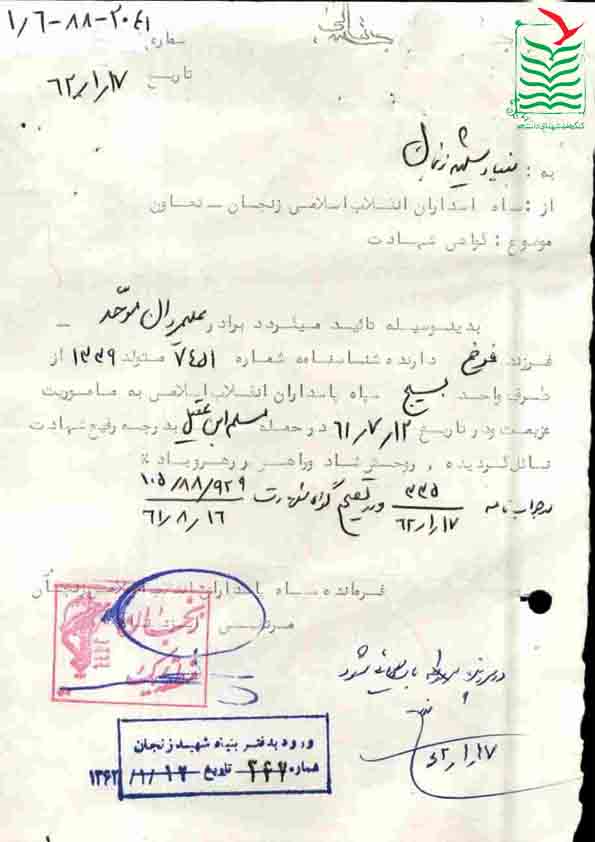 بسمه تعالی
شماره ۱/۶-۸۸-۲۰۴۱
تاریخ ۶۲/۱/۱۷
به : بنیاد شهید زنجان
از : سپاه پاسداران انقلاب اسلامی زنجان - تعاون
موضوع : گواهی شهادت
بدینوسیله تائید میگردد برادر علیمردان موحّد
فرزند فرخ دارنده شناسنامه شماره ۷۴۵۱ متولد ۱۳۳۹ از
طرف واحد بسیج سپاه پاسداران انقلاب اسلامی به ماموریت
عزیمت و در تاریخ ۶۱/۷/۱۲ در حمله مسلم ابن عقیل بدرجه رفیع شهادت
نائل گردیده , روحش شاد وراهش پر رهرو باد ٪
در جواب نامه ۳۳۵ - ۶۲/۱/۱۷ و در تصحیح گواه شهادت ۱۰۵/۸۸/۹۲۹ - ۶۱/۸/۱۶
فرمانده سپاه پاسداران انقلاب اسلامی زنجان
زنجان
در پرونده مربوطه بایگانی شود
۶۲/۱/۱۷
ورود بدفتر بنیاد شهید زنجان
شماره ۳۶۷ تاریخ ۱۳۶۲/۱/۱۷